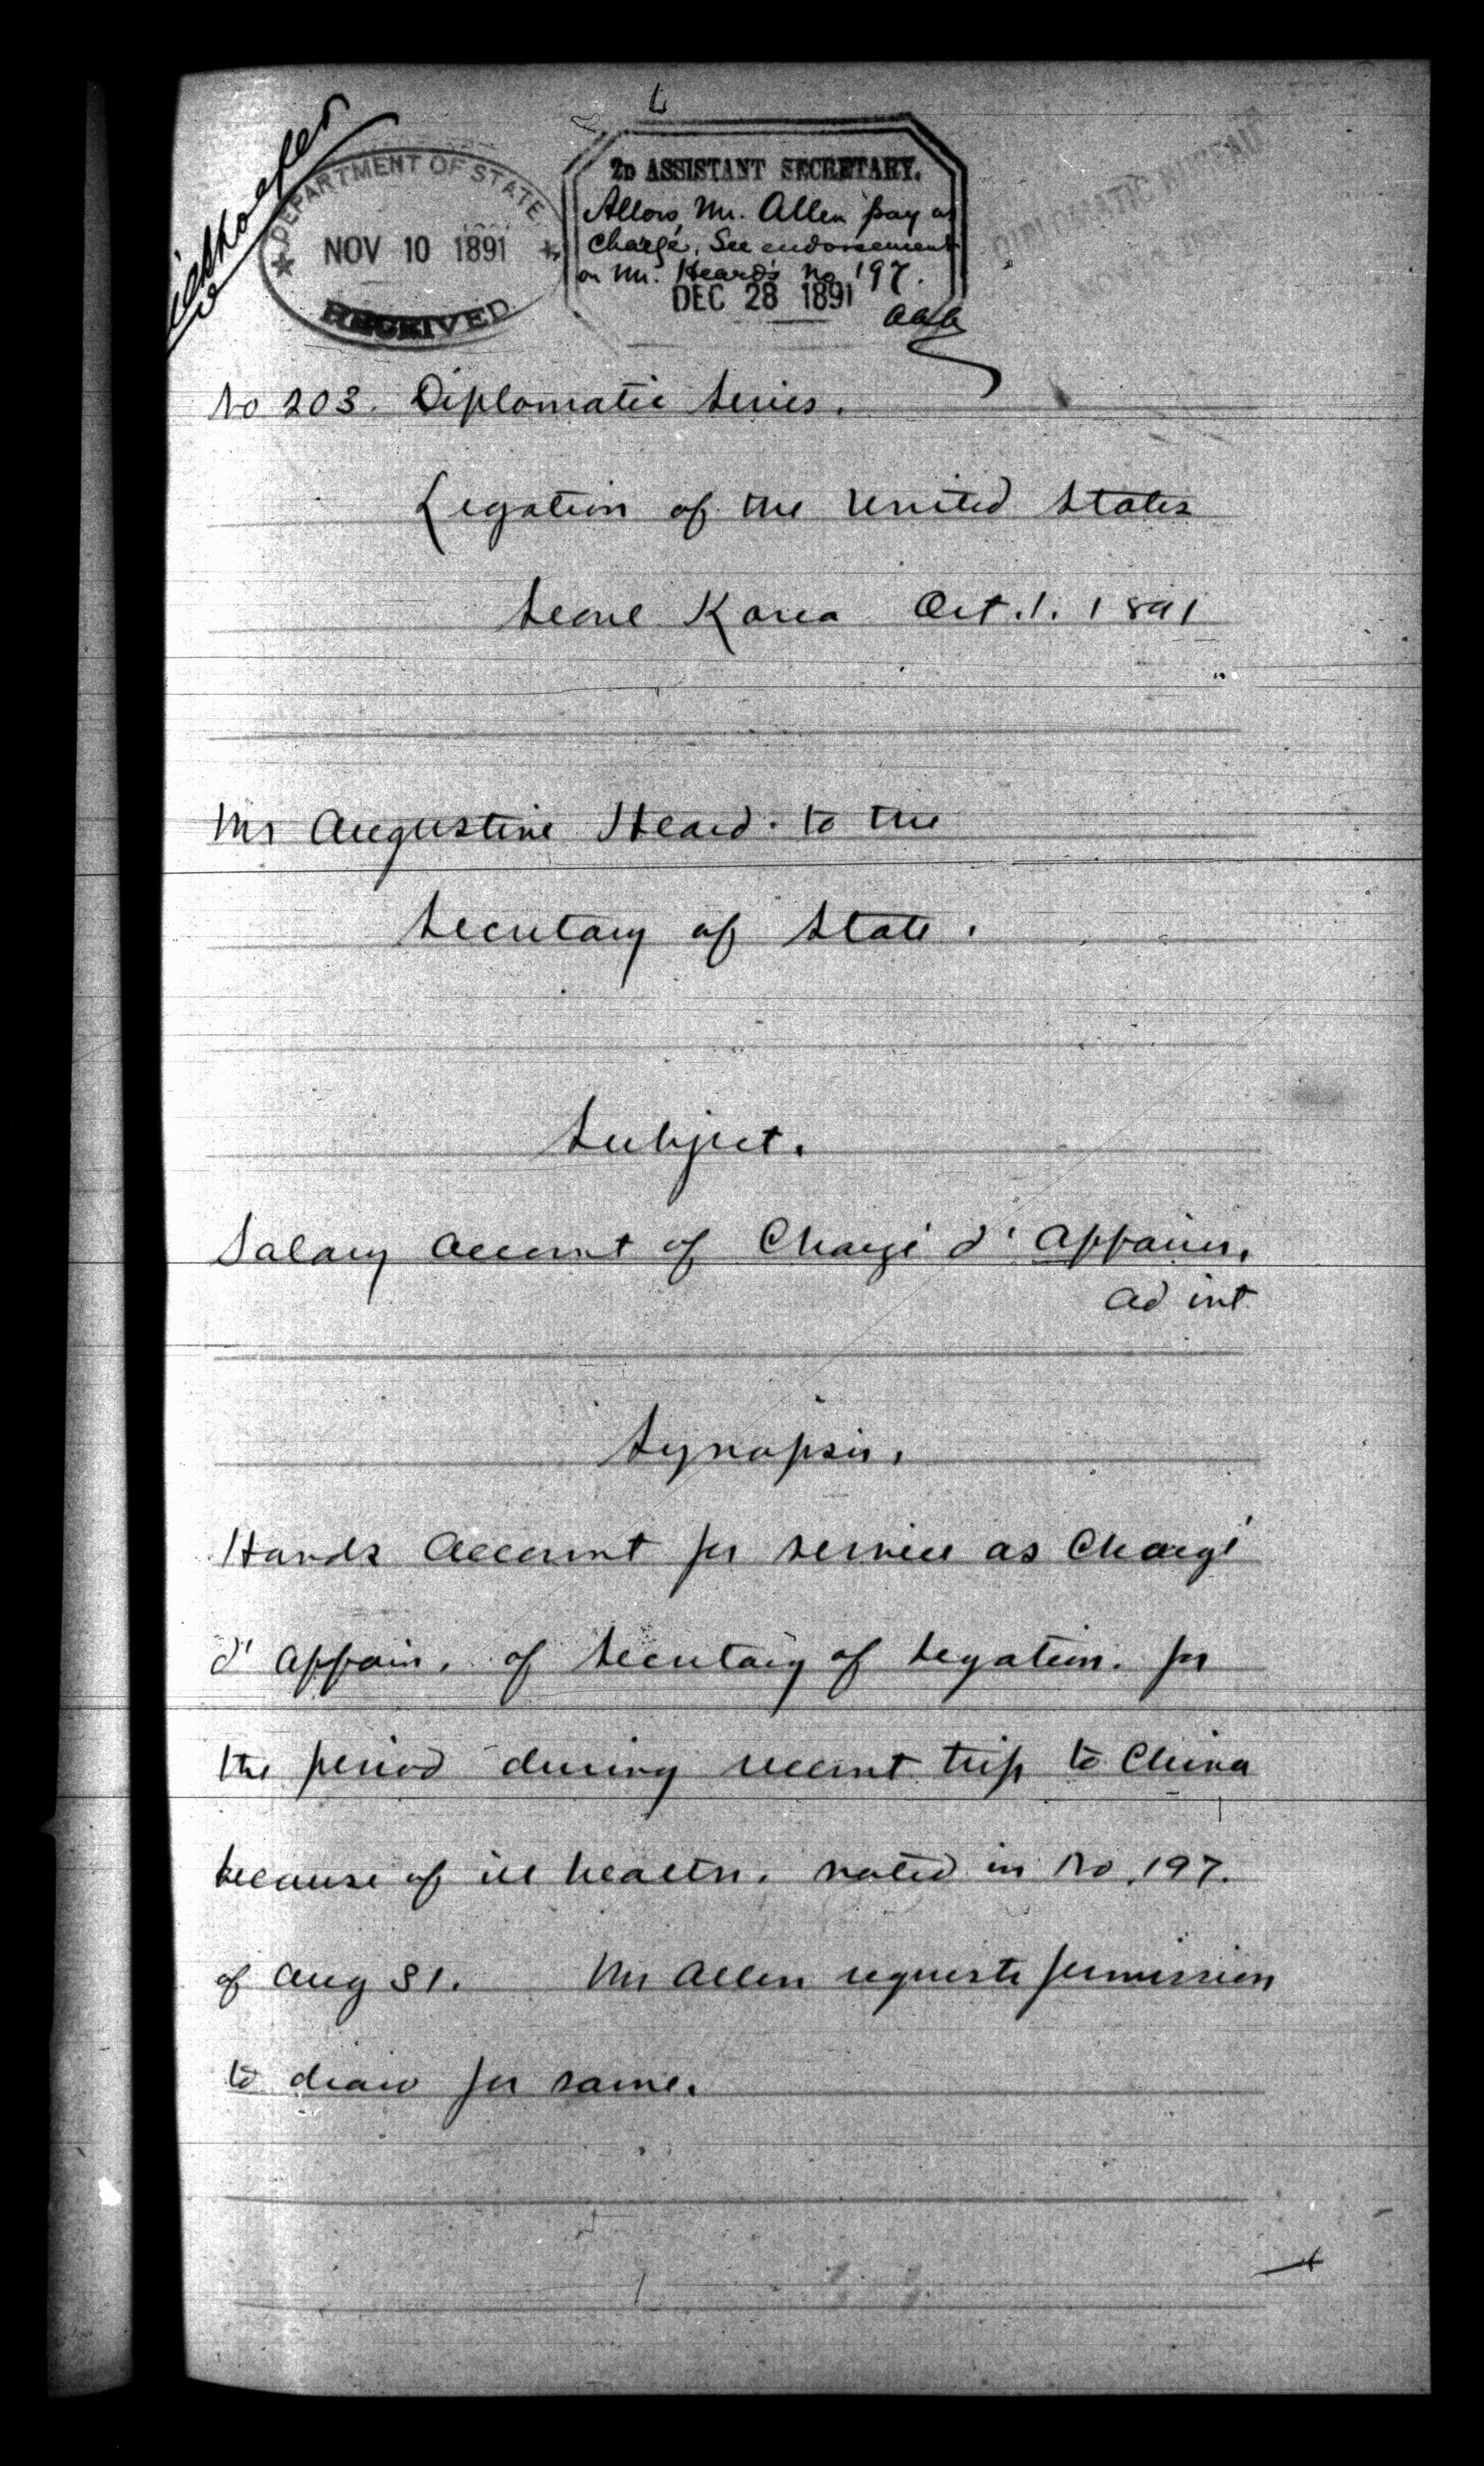 DEPARTMENT OF STATE
NOV 10 1891
RECEIVED
2D ASSISTANT SECRETARY.
Allow Mr. Allen pay as
Chargé. See endorsement
on Mr. Heard's No 197.
DEC 28 1891
DIPLOMATIC BUREAU
No 203. Diplomatic Series.
Legation of the United States
Seoul Korea Oct. 1. 1891
Mr Augustine Heard. to the
Secretary of State.
Subject.
Salary account of Chargé d' Affaires,
ad int
Synopsis.
Hands account for service as Chargé
d' Affairs. of Secretary of Legation. for
the period during recent trip to China
because of ill health. noted in No. 197.
of Aug 31. Mr Allen requests permission
to draw for same.